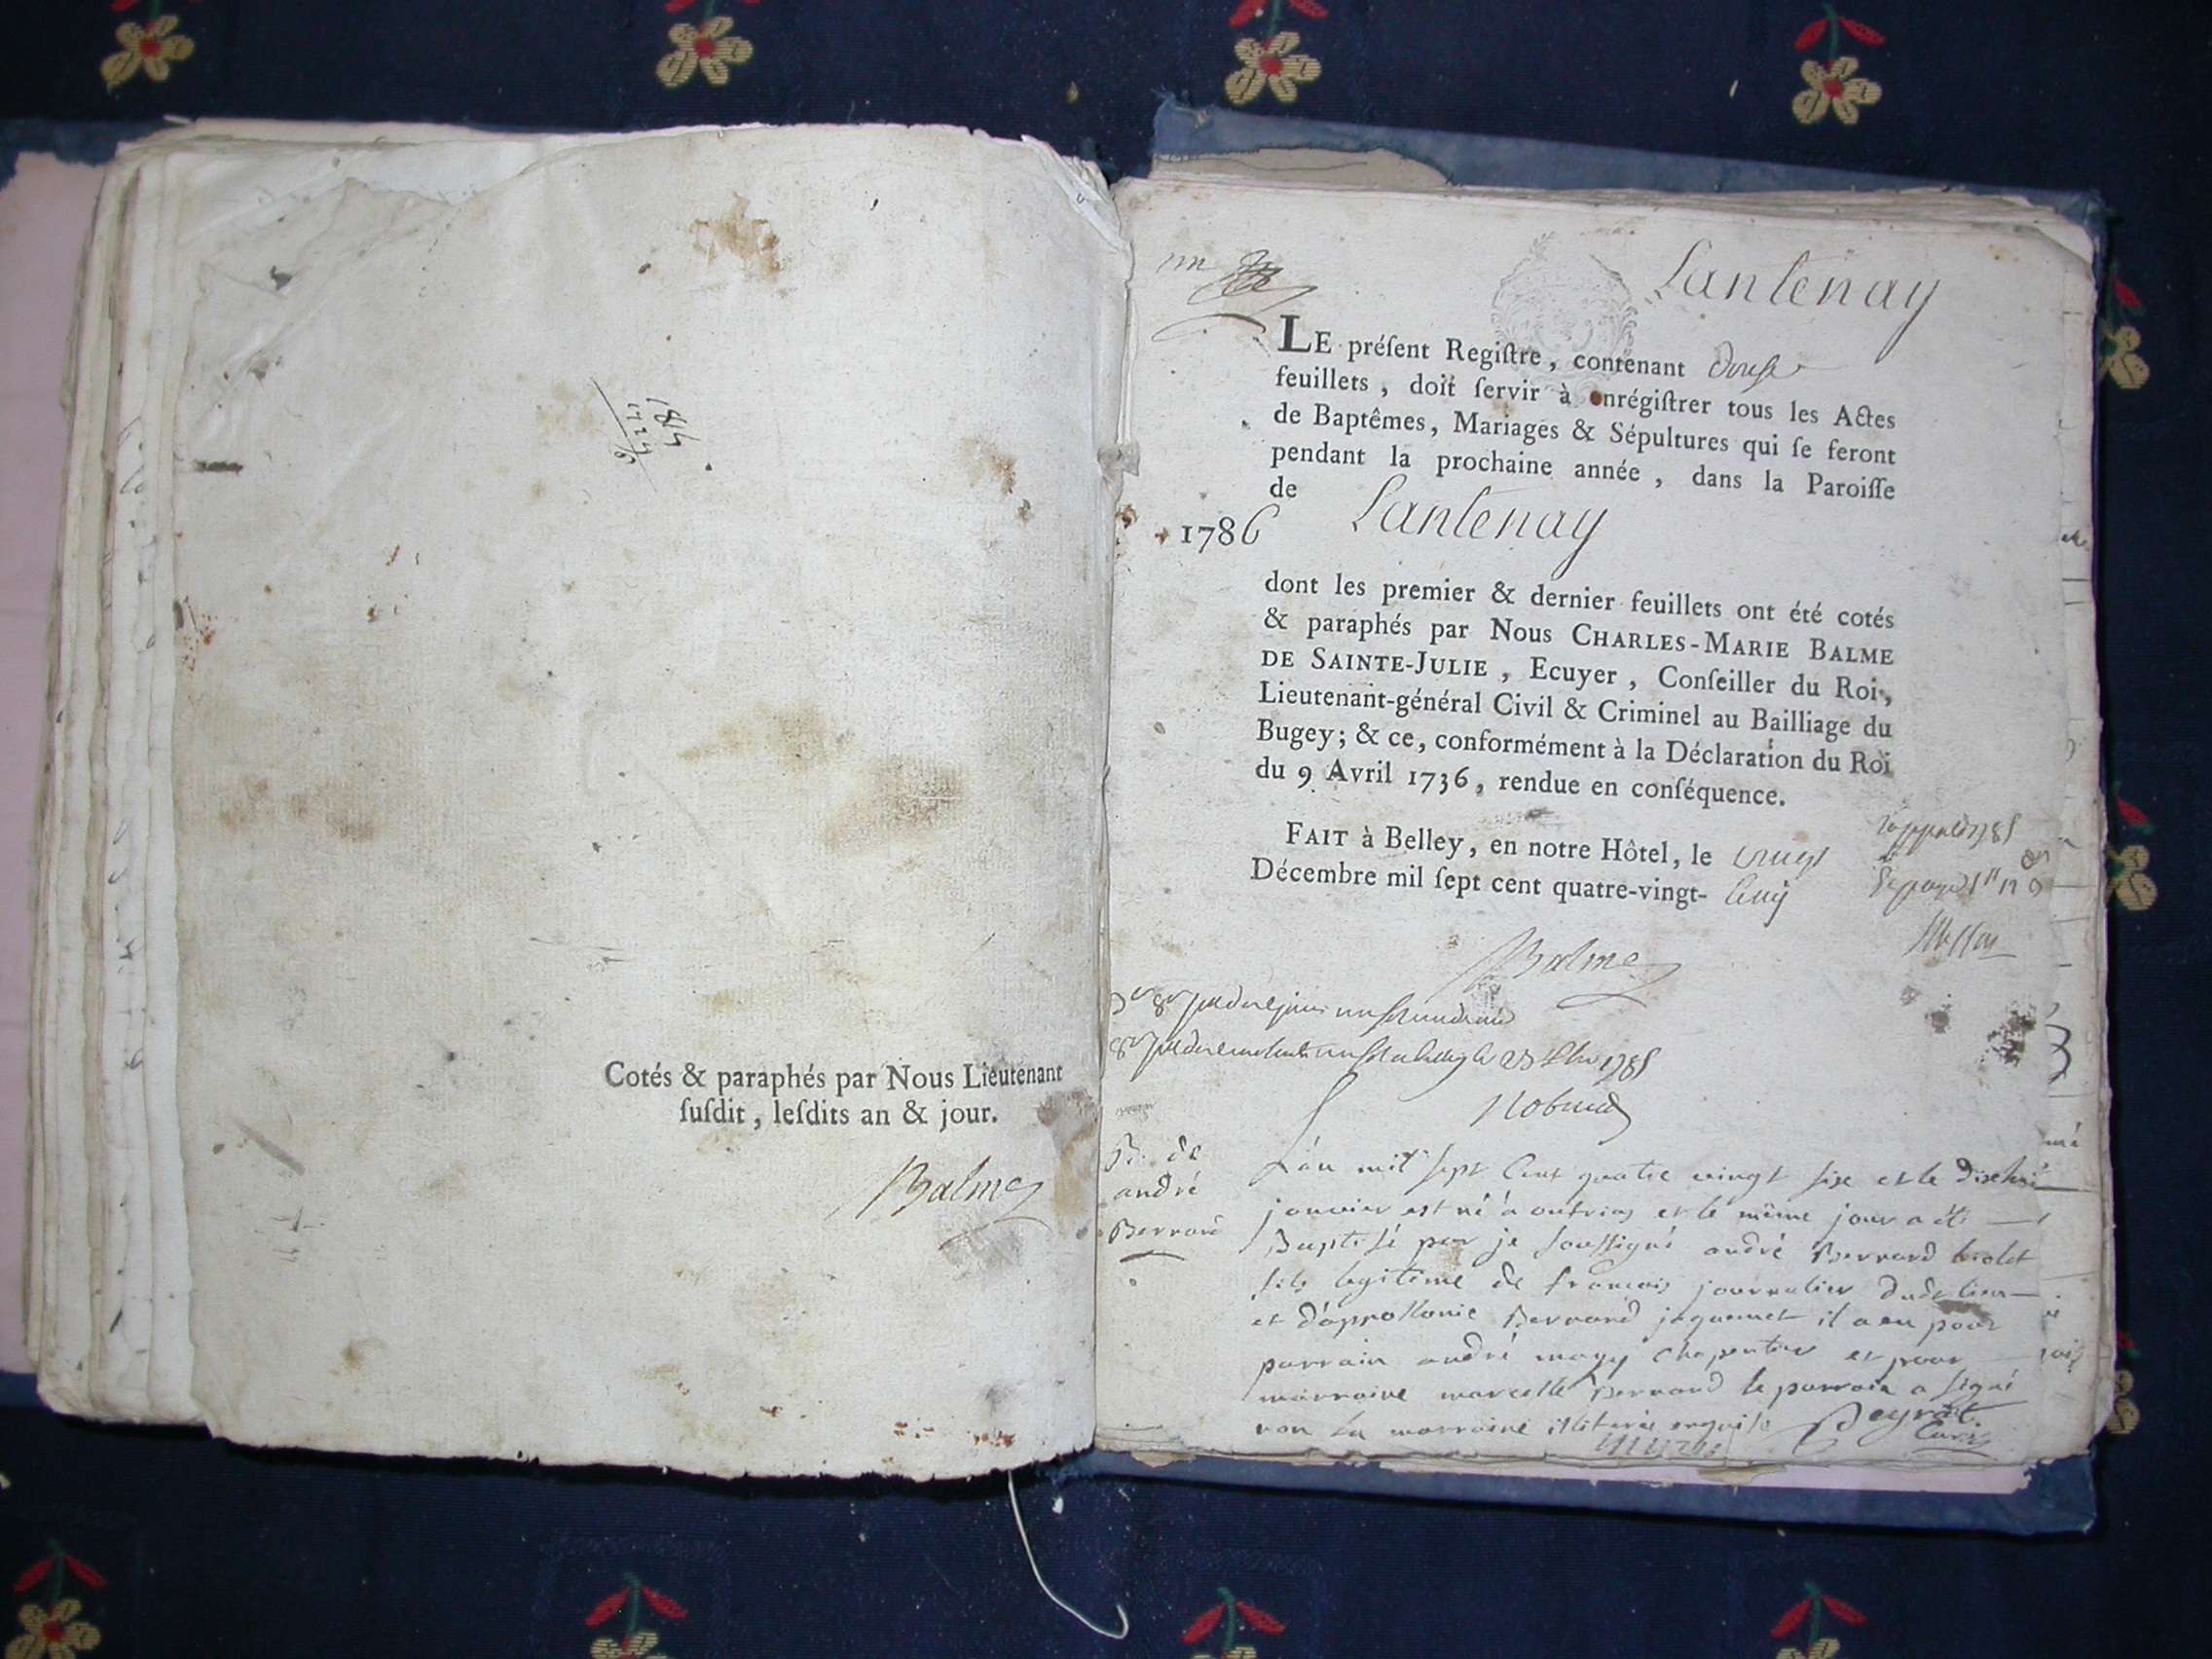 184
1724
Cotés & paraphés par Nous Lieutenant
ſuſdit, leſdits an & jour.
Balme
Lantenay
LE préſent Regiſtre, contenant douse
feuillets, doit ſervir à enrégiſtrer tous les Actes
de Baptêmes, Mariages & Sépultures qui ſe feront
pendant la prochaine année, dans la Paroiſſe
de
1786 Lantenay
dont les premier & dernier feuillets ont été cotés
& paraphés par Nous CHARLES-MARIE BALME
DE SAINTE-JULIE, Ecuyer, Conſeiller du Roi,
Lieutenant-général Civil & Criminel au Bailliage du
Bugey; & ce, conformément à la Déclaration du Roi
du 9 Avril 1736, rendue en conſéquence.
FAIT à Belley, en notre Hôtel, le vingt
Décembre mil ſept cent quatre-vingt- Cinq
Balme
1785
B. de
andré
Bernard
L'an mil sept Cent quatre vingt six et le
janvier est né à outriaz et le même jour a été
Baptisé par je soussigné andré Bernard violet
fils legitime de françois journalier dudt lieu
et d'appollonie Bernard jaquemet il a eu pour
parrain andré mayy Chapentier et pour
marraine marcelle Bernard le parrain a signé
non la marraine illiterée enquise Peyrat
Curé